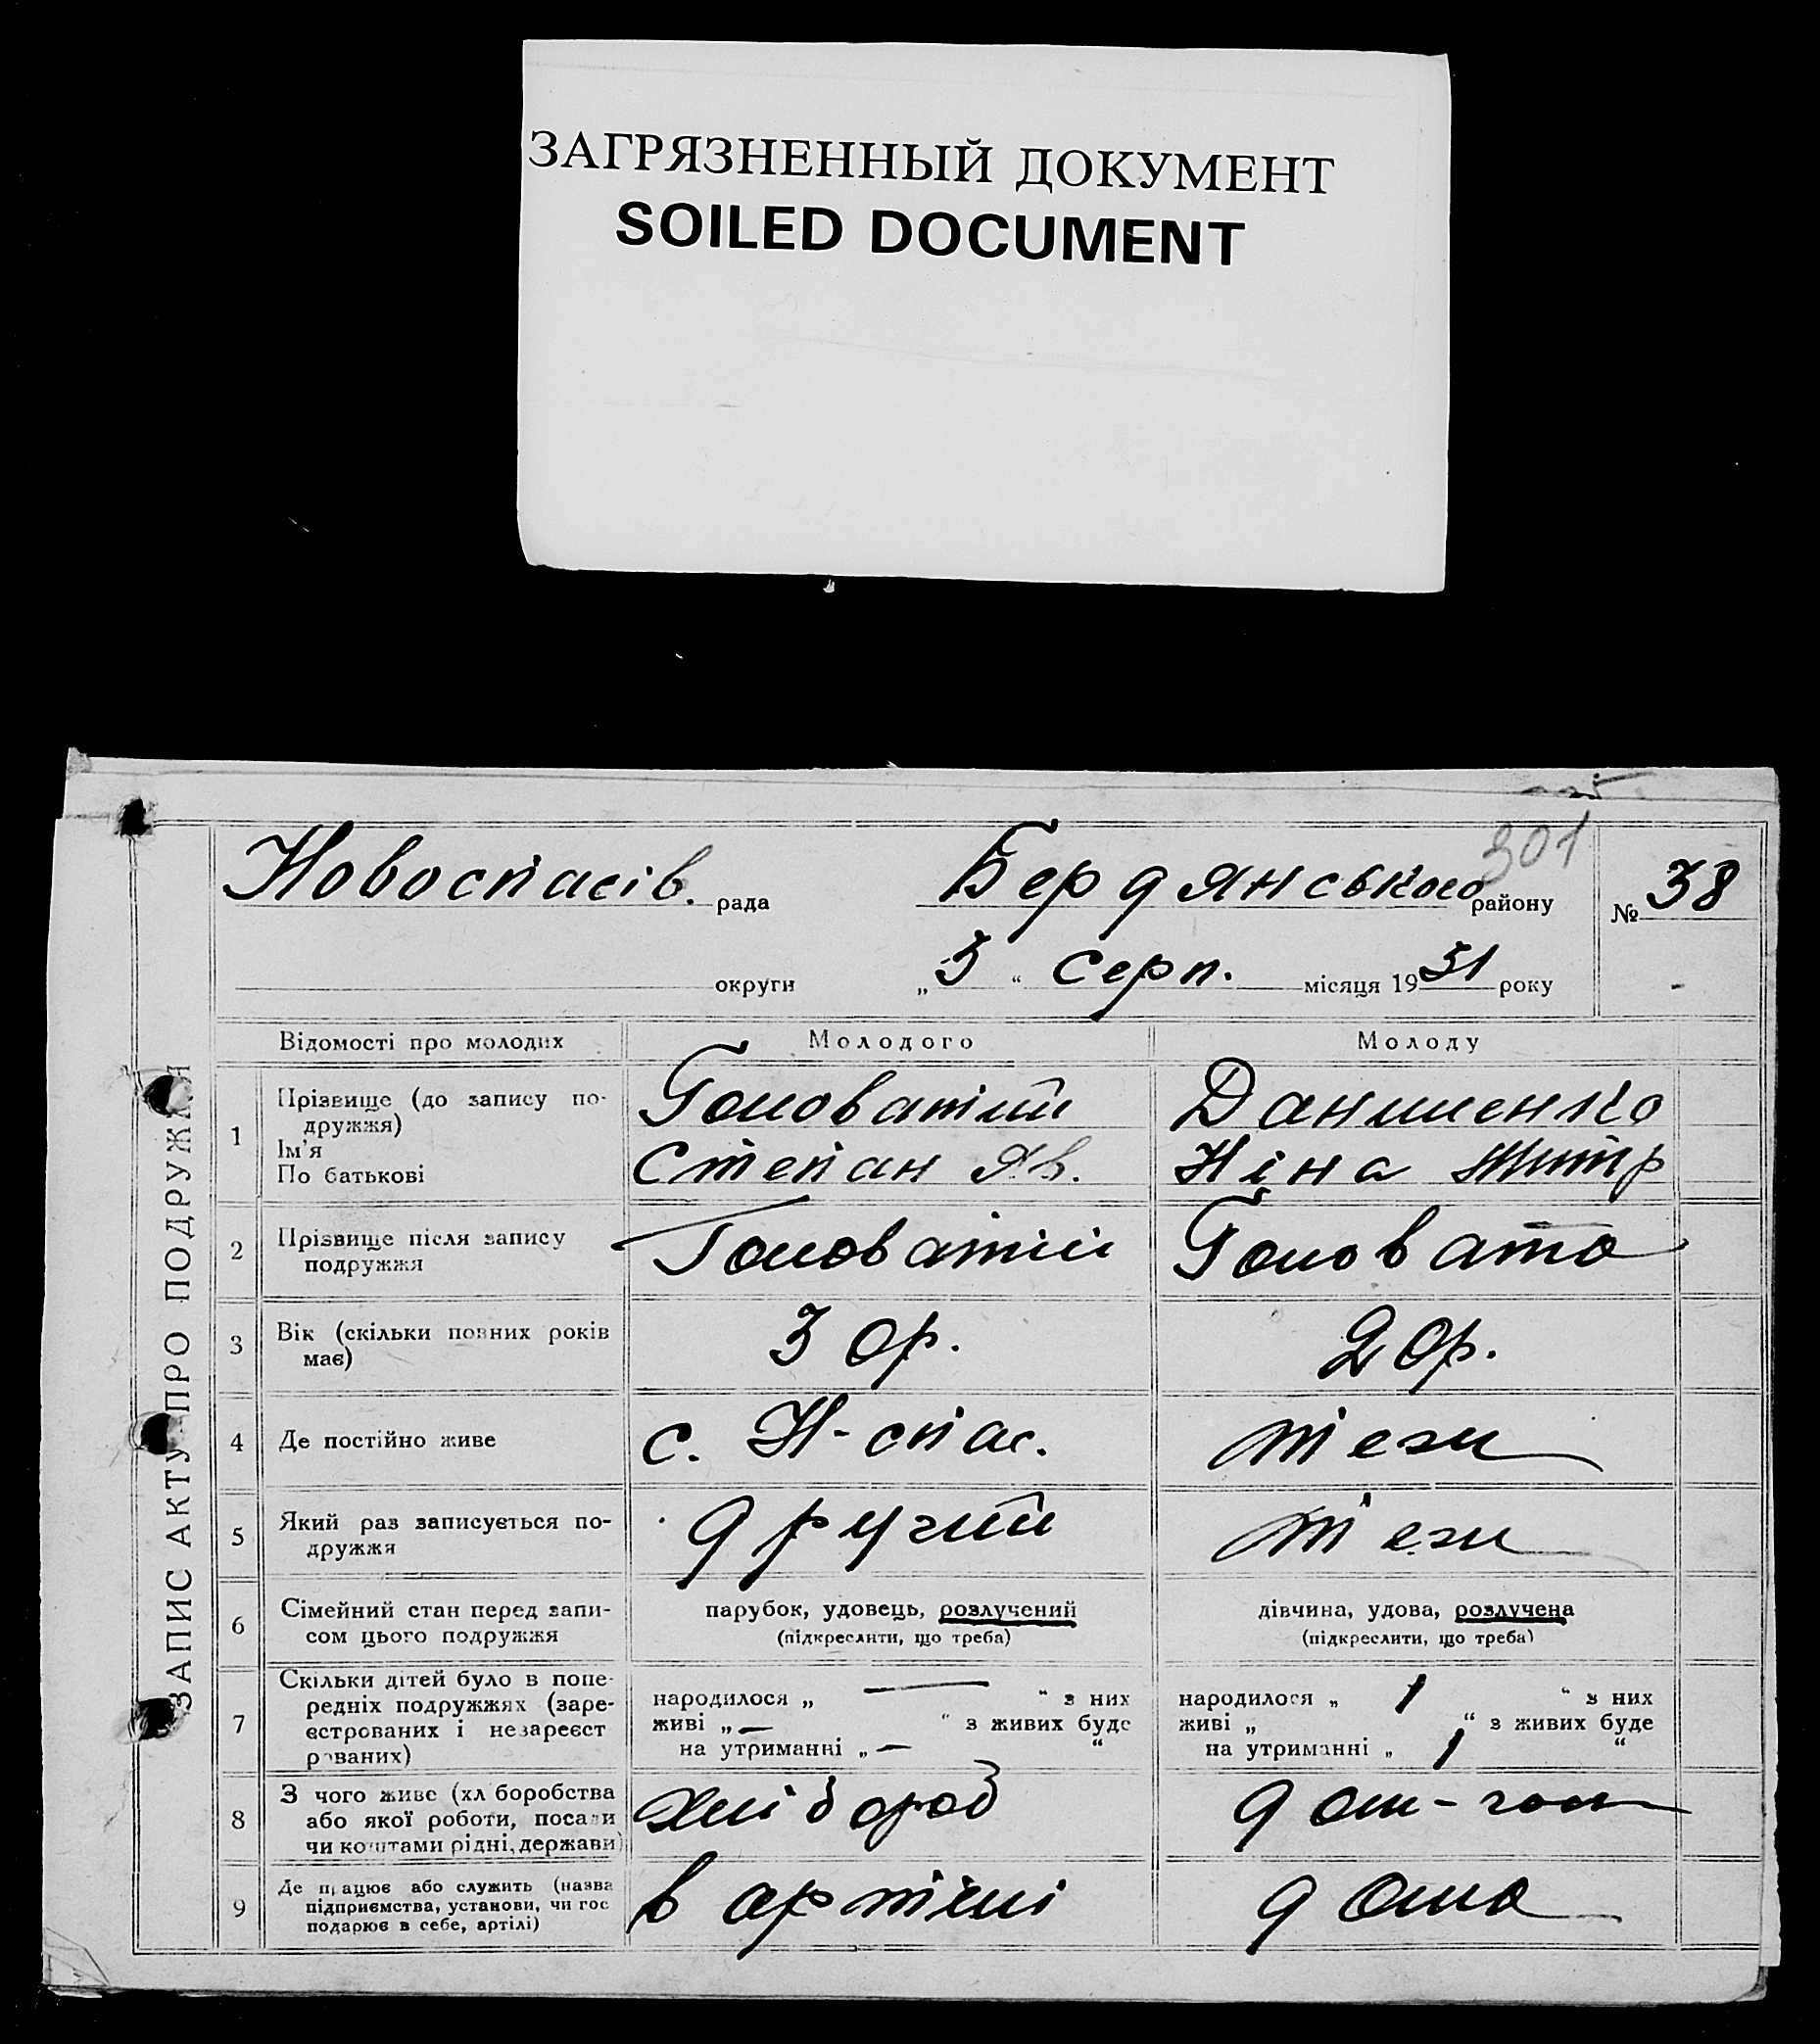 ЗАГРЯЗНЕННЫЙ ДОКУМЕНТ
SOILED DOCUMENT
301
Новоспасів. рада Бердянського району № 38
округи „ 3 “ Серп. місяця 1931 року
ЗАПИС АКТУ ПРО ПОДРУЖЖЯ
Відомості про молодих Молодого Молоду
1 Прізвище (до запису по-
дружжя)
Ім'я
По батькові
Головатий
Степан Яв.
Даниленко
Ніна Митр
2 Прізвище після запису
подружжя
Головатий Головата
3 Вік (скільки повних років
має)
30р. 20р.
4 Де постійно живе с. Н-спас. теж
5 Який раз записується по-
дружжя
другий теж
6 Сімейний стан перед запи-
сом цього подружжя
парубок, удовець, розлучений
(підкреслити, що треба)
дівчина, удова, розлучена
(підкреслити, що треба)
7 Скільки дітей було в попе-
редніх подружжях (заре-
єстрованих і незареєст
рованих)
народилося „ — “ з них
живі „ — “ з живих буде
на утриманні „ — “
народилося „ 1 “ з них
живі „ “ з живих буде
на утриманні „ 1 “
8 З чого живе (хліборобства
або якої роботи, посади
чи коштами рідні, держави)
хлібороб дом-госп
9 Де працює або служить (назва
підприємства, установи, чи гос
подарює в себе, артілі)
в артілі дома